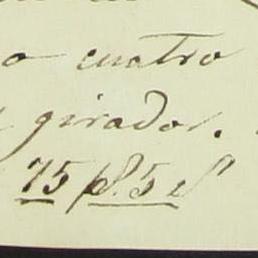 o cuatro
girador.
75 p.s 5 r.s